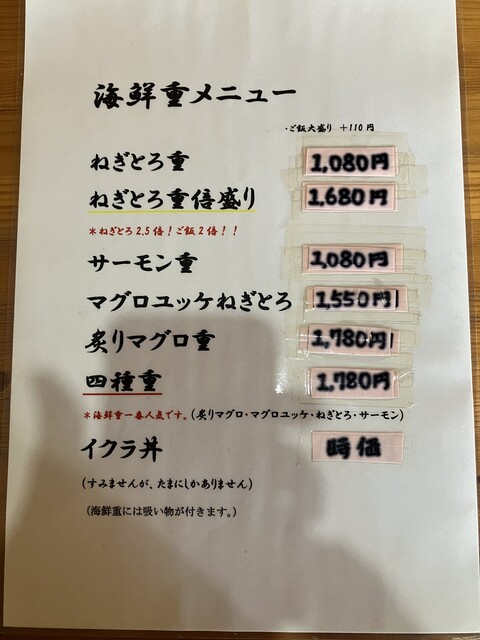 海鮮重メニュー
・ご飯大盛り ＋110円
ねぎとろ重 1,080円
ねぎとろ重倍盛り 1,680円
＊ねぎとろ2.5倍！ご飯2倍！！
サーモン重 1,080円
マグロユッケねぎとろ 1,550円
炙りマグロ重 1,780円
四種重 1,780円
＊海鮮重一番人気です。（炙りマグロ・マグロユッケ・ねぎとろ・サーモン）
イクラ丼 時価
（すみませんが、たまにしかありません）
（海鮮重には吸い物が付きます。）